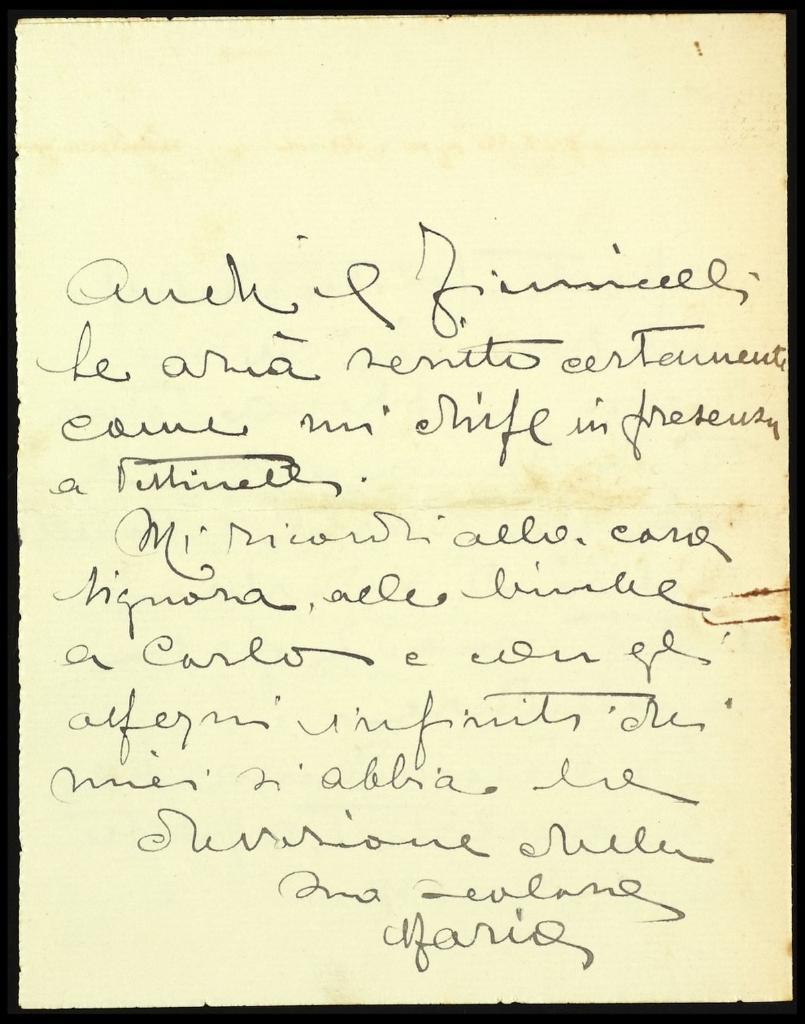 Anche il
le avrà scritto certamente
come mi disse in presenza
a
Mi ricordi alla cara
Signora, alle bimbe
a Carlo e con gli
ossequi infiniti dei
miei si abbia la
devozione della
sua scolara
Maria